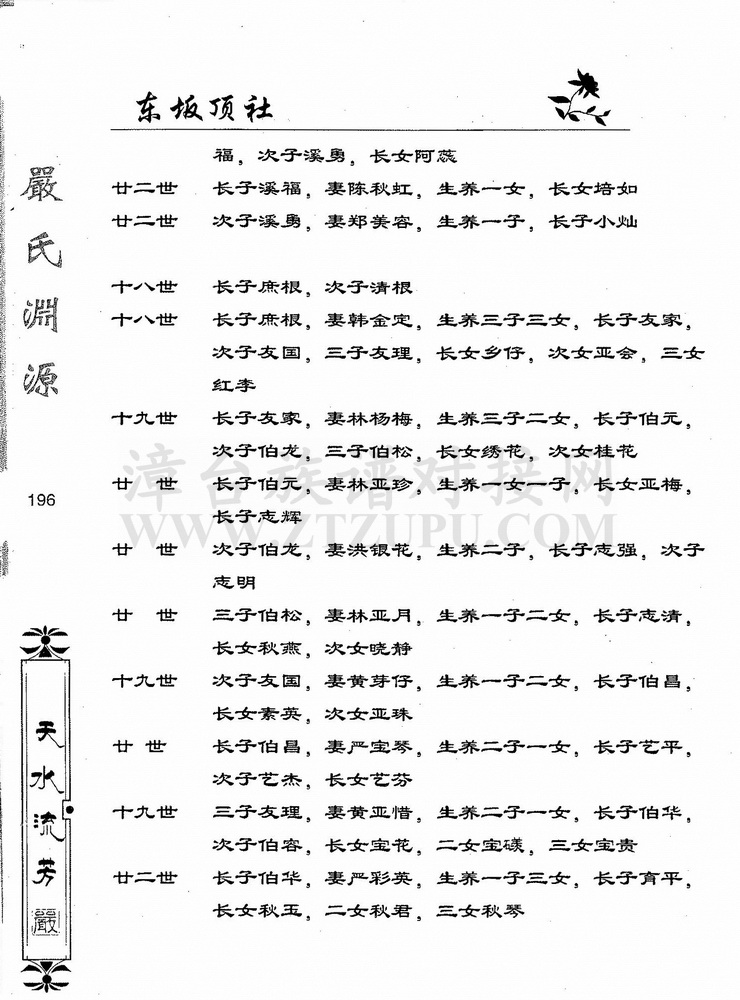 东坂顶社
福，次子溪勇，长女阿蕊
廿二世 长子溪福，妻陈秋虹，生养一女，长女培如
廿二世 次子溪勇，妻郑美容，生养一子，长子小灿
十八世 长子庶根，次子清根
十八世 长子庶根，妻韩金定，生养三子三女，长子友家，
次子友国，三子友理，长女乡仔，次女亚会，三女
红李
十九世 长子友家，妻林杨梅，生养三子二女，长子伯元，
次子伯龙，三子伯松，长女绣花，次女桂花
廿 世 长子伯元，妻林亚珍，生养一女一子，长女亚梅，
长子志辉
廿 世 次子伯龙，妻洪银花，生养二子，长子志强，次子
志明
廿 世 三子伯松，妻林亚月，生养一子二女，长子志清，
长女秋燕，次女晓静
十九世 次子友国，妻黄芽仔，生养一子二女，长子伯昌，
长女素英，次女亚珠
廿 世 长子伯昌，妻严宝琴，生养二子一女，长子艺平，
次子艺杰，长女艺芬
十九世 三子友理，妻黄亚惜，生养二子一女，长子伯华，
次子伯容，长女宝花，二女宝礒，三女宝贵
廿二世 长子伯华，妻严彩英，生养一子三女，长子育平，
长女秋玉，二女秋君，三女秋琴
嚴氏淵源
196
天水流芳
嚴
漳台族谱对接网
WWW.ZTZUPU.COM